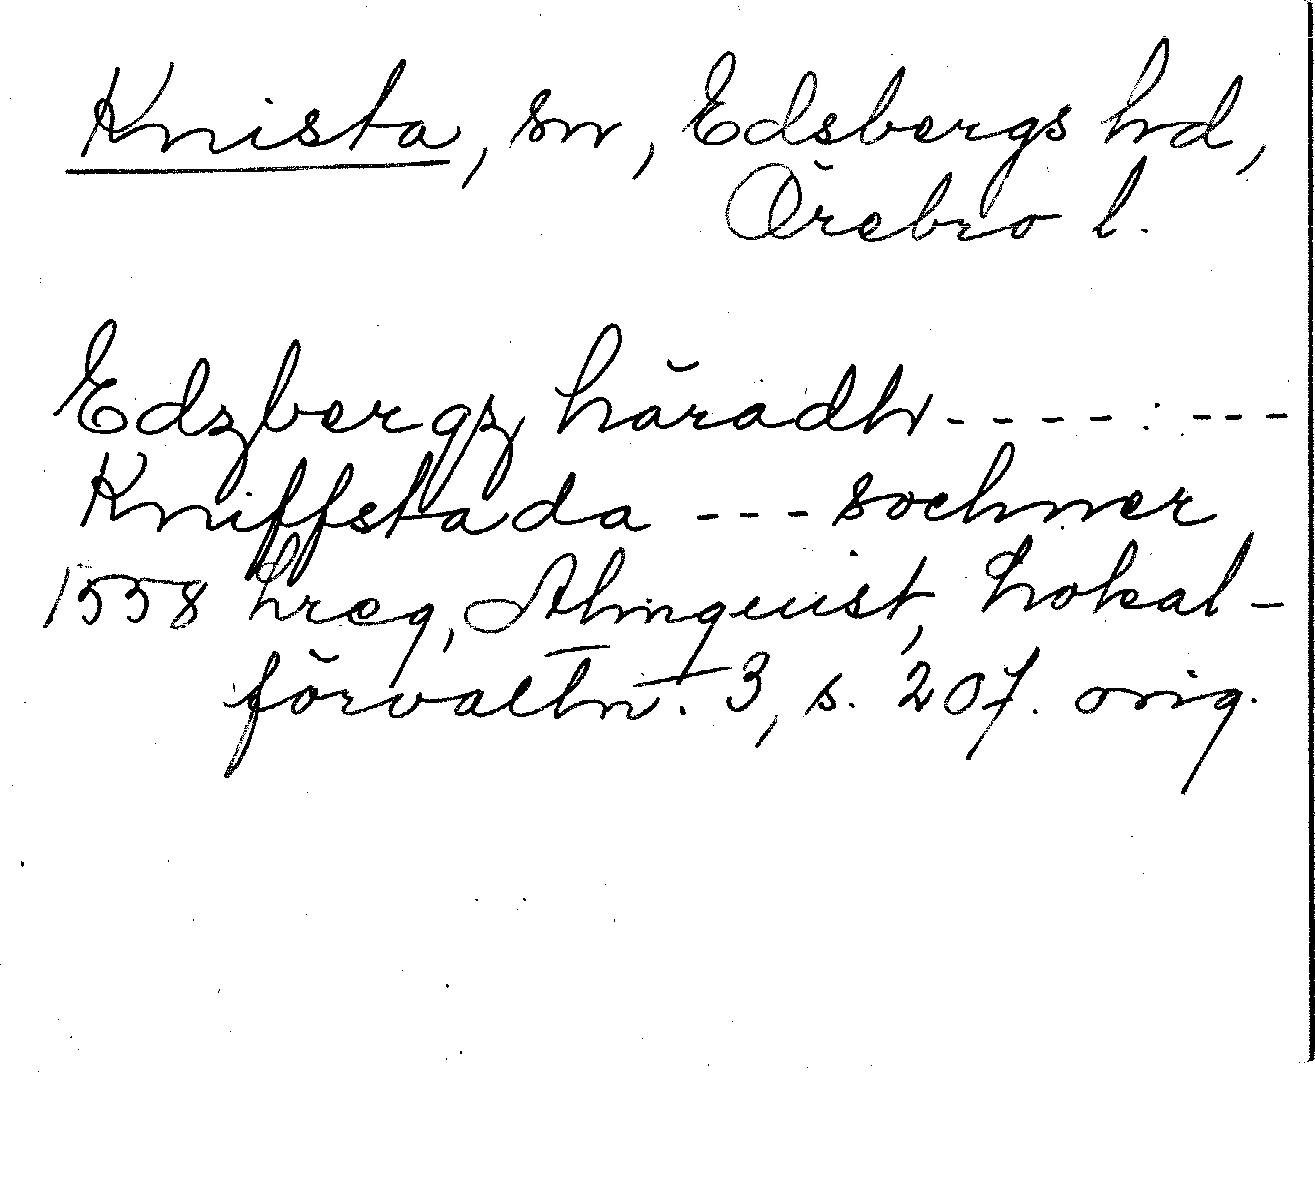 Knista, sn, Edsbergs hd,
Örebro l.
Edzbergz häradh - - - - : - - -
Kniffstada - - - sochner
1558 Lreg, Almquist, Lokal-
förvaltn. 3, s. 207. orig.